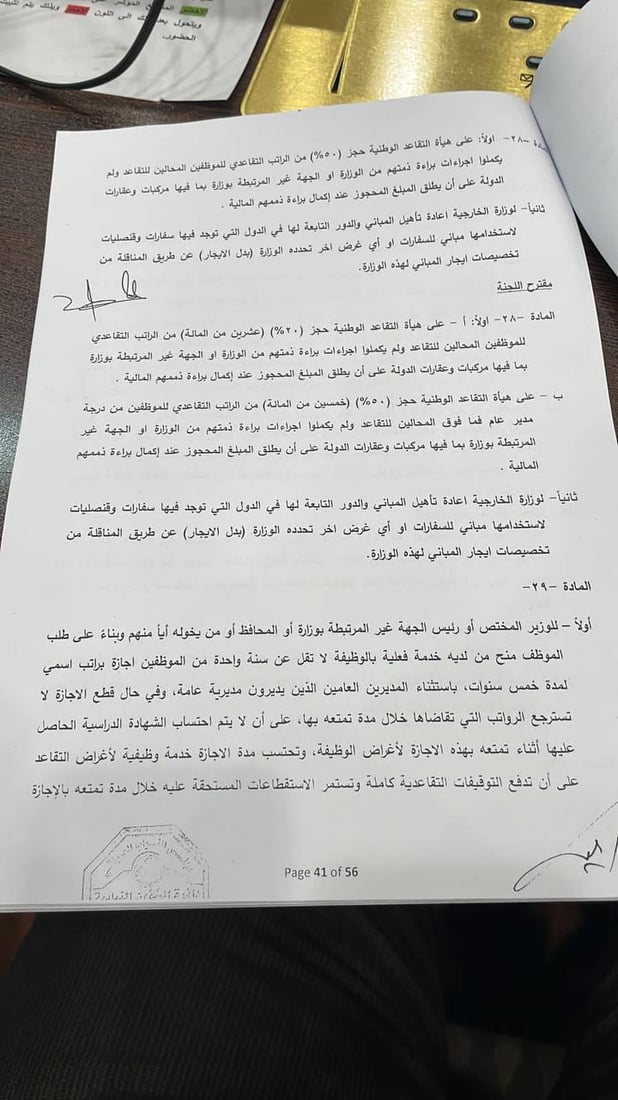 الاخضر
ويتحول بعد ذلك الى اللون الاحمر وبذلك يتم تثبيت
الحضور.
-٢٨- اولاً: على هيأة التقاعد الوطنية حجز (٥٠%) من الراتب التقاعدي للموظفين المحالين للتقاعد ولم
يكملوا اجراءات براءة ذمتهم من الوزارة او الجهة غير المرتبطة بوزارة بما فيها مركبات وعقارات
الدولة على أن يطلق المبلغ المحجوز عند إكمال براءة ذممهم المالية .
ثانياً- لوزارة الخارجية اعادة تأهيل المباني والدور التابعة لها في الدول التي توجد فيها سفارات وقنصليات
لاستخدامها مباني للسفارات او أي غرض اخر تحدده الوزارة (بدل الايجار) عن طريق المناقلة من
تخصيصات ايجار المباني لهذه الوزارة.
مقترح اللجنة
المادة -٢٨- اولاً: أ - على هيأة التقاعد الوطنية حجز (٢٠%) (عشرين من المائة) من الراتب التقاعدي
للموظفين المحالين للتقاعد ولم يكملوا اجراءات براءة ذمتهم من الوزارة او الجهة غير المرتبطة بوزارة
بما فيها مركبات وعقارات الدولة على أن يطلق المبلغ المحجوز عند إكمال براءة ذممهم المالية .
ب - على هيأة التقاعد الوطنية حجز (٥٠%) (خمسين من المائة) من الراتب التقاعدي للموظفين من درجة
مدير عام فما فوق المحالين للتقاعد ولم يكملوا اجراءات براءة ذمتهم من الوزارة او الجهة غير
المرتبطة بوزارة بما فيها مركبات وعقارات الدولة على أن يطلق المبلغ المحجوز عند إكمال براءة ذممهم
المالية .
ثانياً- لوزارة الخارجية اعادة تأهيل المباني والدور التابعة لها في الدول التي توجد فيها سفارات وقنصليات
لاستخدامها مباني للسفارات او أي غرض اخر تحدده الوزارة (بدل الايجار) عن طريق المناقلة من
تخصيصات ايجار المباني لهذه الوزارة.
المادة -٢٩-
أولاً – للوزير المختص أو رئيس الجهة غير المرتبطة بوزارة أو المحافظ أو من يخوله أياً منهم وبناءً على طلب
الموظف منح من لديه خدمة فعلية بالوظيفة لا تقل عن سنة واحدة من الموظفين اجازة براتب اسمي
لمدة خمس سنوات، باستثناء المديرين العامين الذين يديرون مديرية عامة، وفي حال قطع الاجازة لا
تسترجع الرواتب التي تقاضاها خلال مدة تمتعه بها، على أن لا يتم احتساب الشهادة الدراسية الحاصل
عليها أثناء تمتعه بهذه الاجازة لأغراض الوظيفة، وتحتسب مدة الاجازة خدمة وظيفية لأغراض التقاعد
على أن تدفع التوقيفات التقاعدية كاملة وتستمر الاستقطاعات المستحقة عليه خلال مدة تمتعه بالإجازة
Page 41 of 56